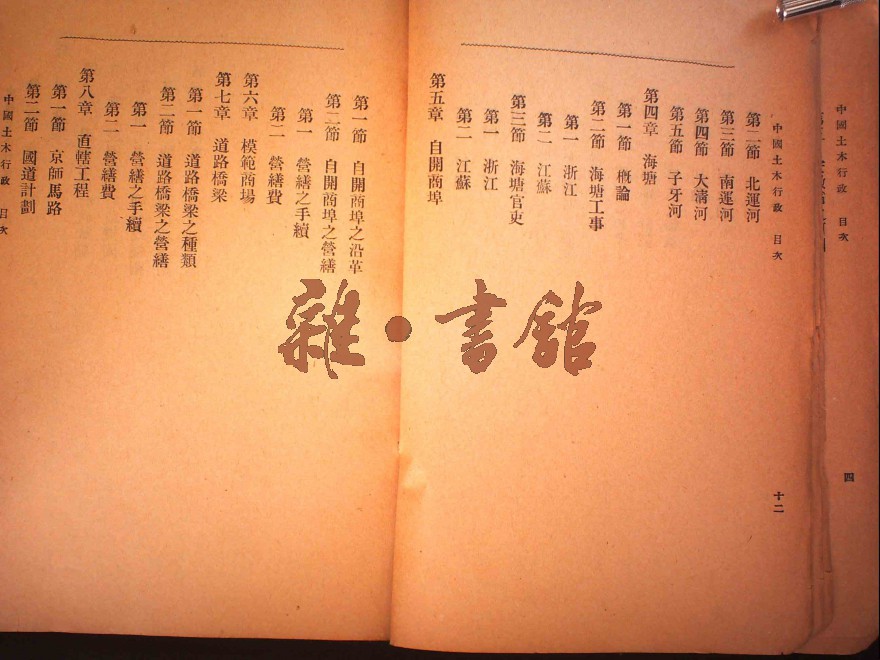 中國土木行政 目次
四
中國土木行政 目次
十二
第二節 北運河
第三節 南運河
第四節 大清河
第五節 子牙河
第四章 海塘
第一節 概論
第二節 海塘工事
第一 浙江
第二 江蘇
第三節 海塘官吏
第一 浙江
第二 江蘇
第五章 自開商埠
第一節 自開商埠之沿革
第二節 自開商埠之營繕
第一 營繕之手續
第二 營繕費
第六章 模範商場
第七章 道路橋梁
第一節 道路橋梁之種類
第二節 道路橋梁之營繕
第一 營繕之手續
第二 營繕費
第八章 直轄工程
第一節 京師馬路
第二節 國道計劃
中國土木行政 目次
雜·書館